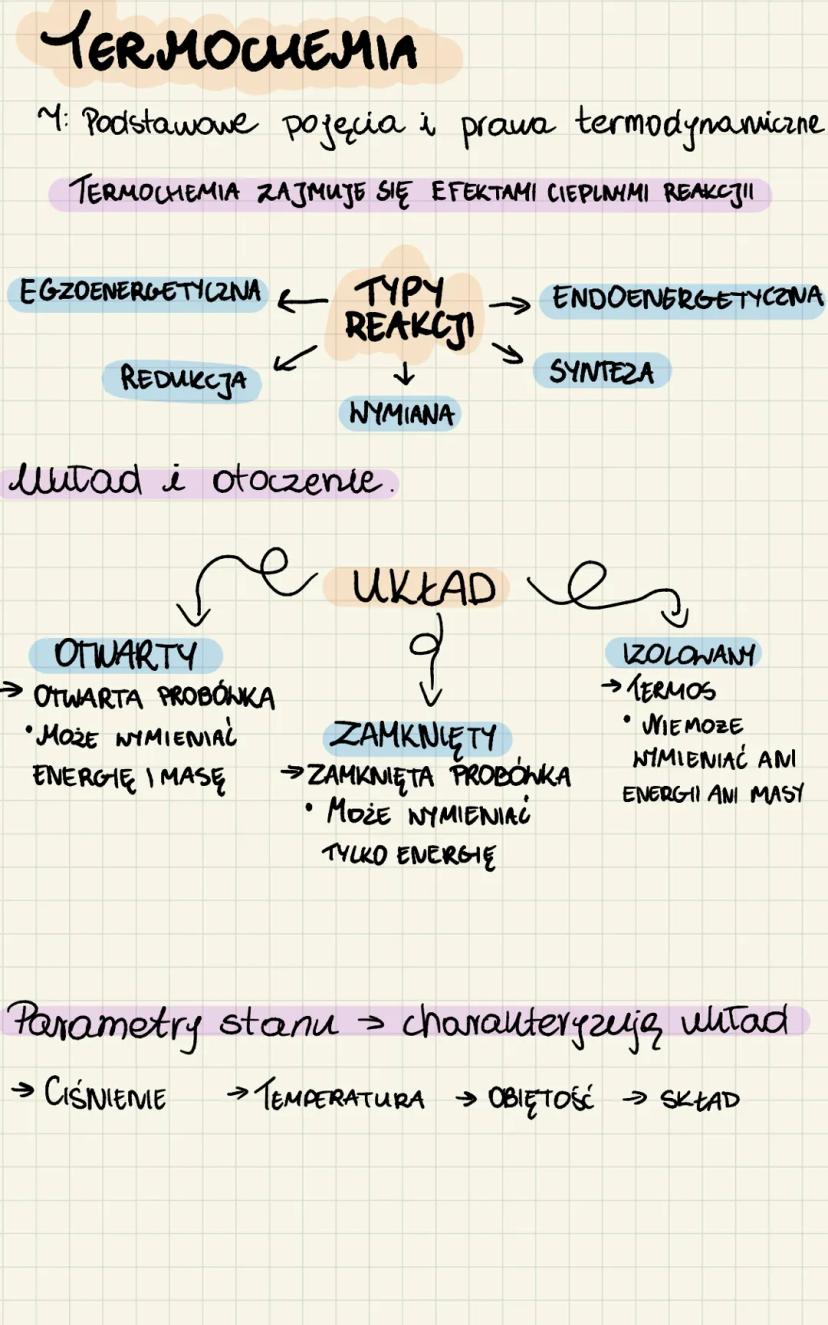 TERMOCHEMIA
1: Podstawowe pojęcia i prawa termodynamiczne
TERMOCHEMIA ZAJMUJE SIĘ EFEKTAMI CIEPLNYMI REAKCJII
TYPY
REAKCJI
EGZOENERGETYCZNA
ENDOENERGETYCZNA
REDUKCJA
WYMIANA
SYNTEZA
Układ i otoczenie.
UKŁAD
OTWARTY
→ OTWARTA PROBÓWKA
• MOŻE WYMIENIAĆ
ENERGIĘ I MASĘ
ZAMKNIĘTY
→ ZAMKNIĘTA PROBÓWKA
• MOŻE WYMIENIAĆ
TYLKO ENERGIĘ
IZOLOWANY
→ TERMOS
• NIEMOŻE
WYMIENIAĆ ANI
ENERGII ANI MASY
Parametry stanu → charakteryzują układ
→ CIŚNIENIE → TEMPERATURA → OBIĘTOŚĆ → SKŁAD